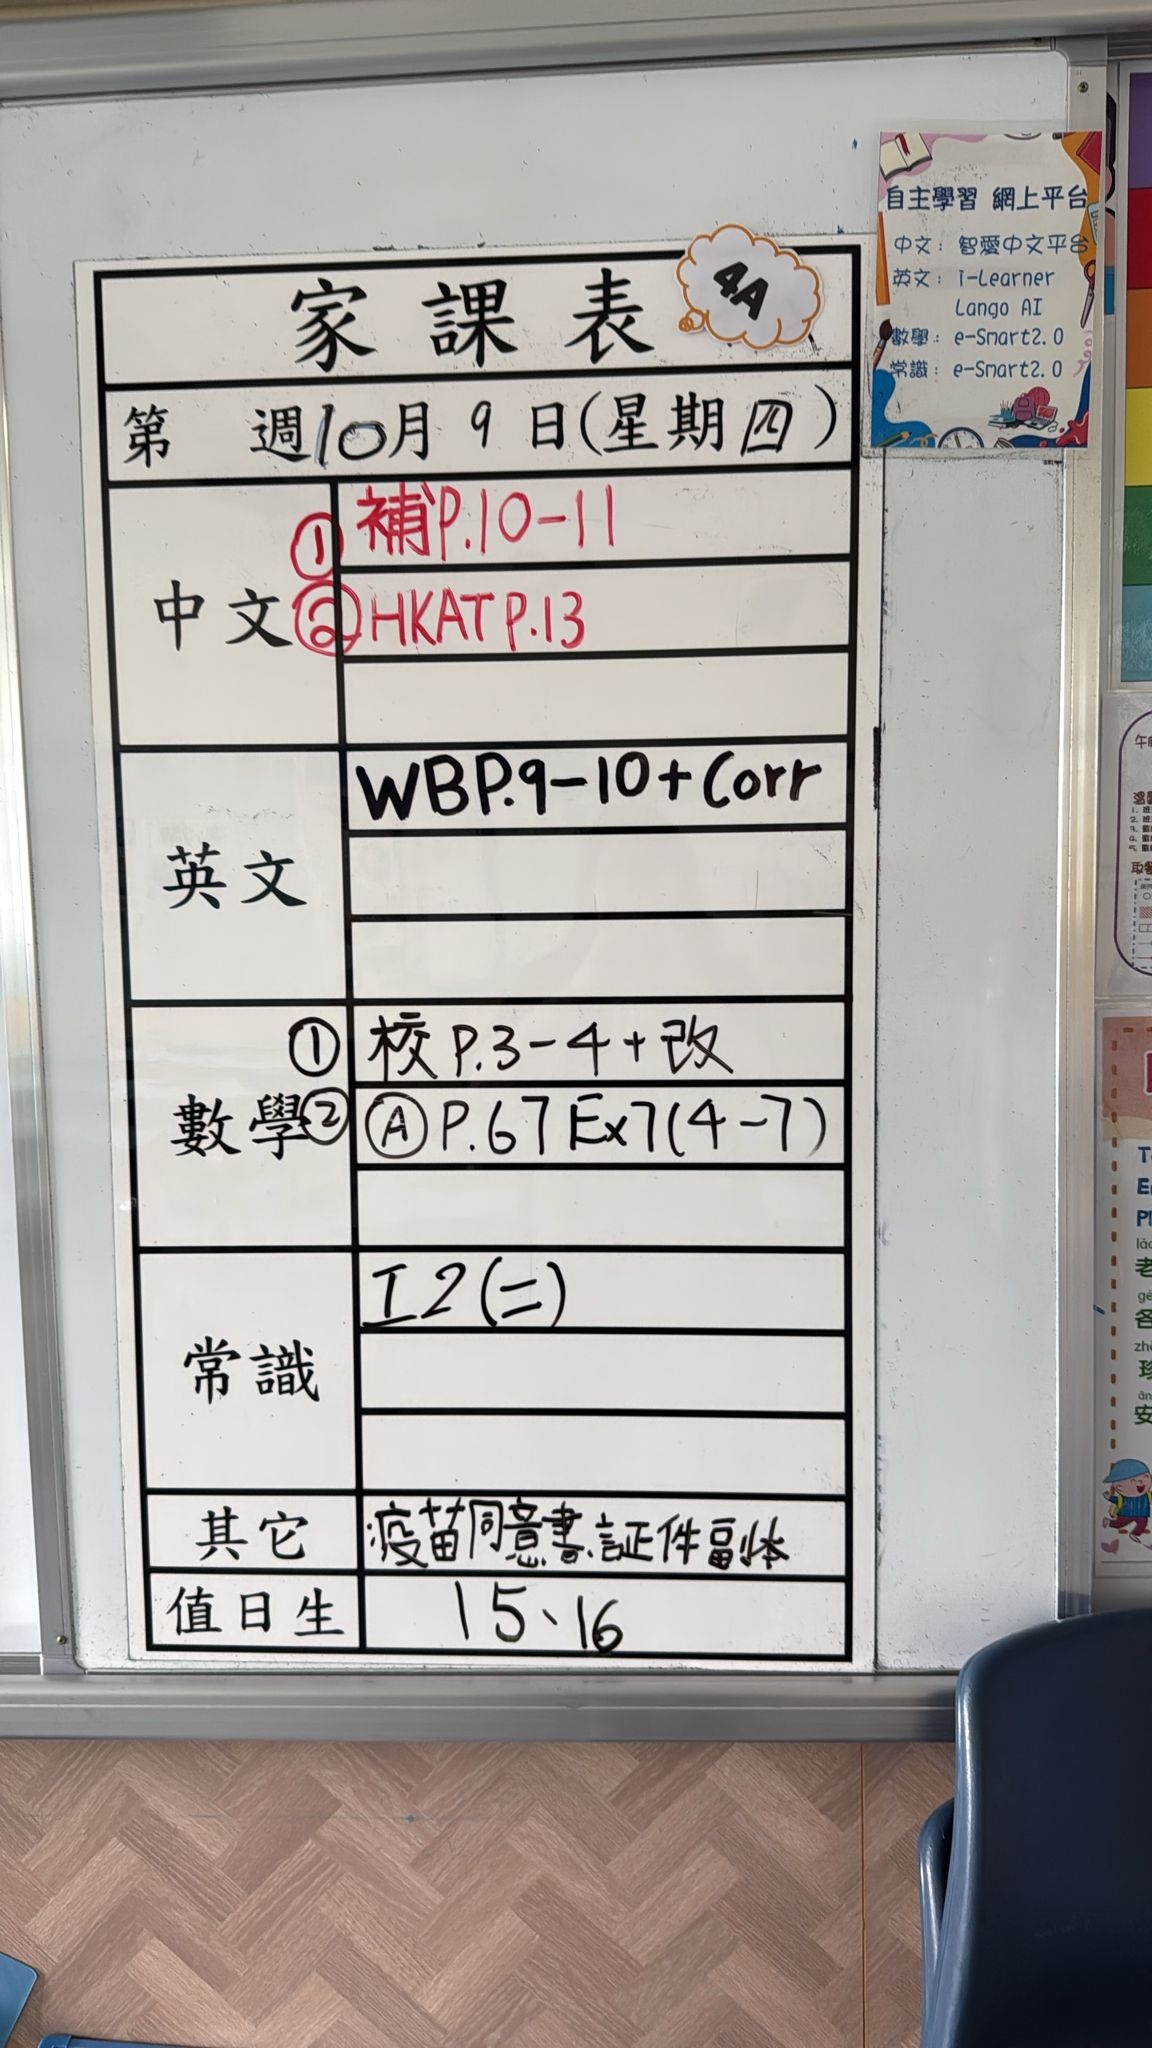 家課表
4A
第 週10月9日(星期四)
中文
① 補P.10-11
② HKAT P.13
英文
WB P.9-10+Corr
數學
① 校P.3-4+改
② Ⓐ P.67 Ex7(4-7)
常識
工2(二)
其它
疫苗同意書、証件副本
值日生
15、16
自主學習 網上平台
中文：智愛中文平台
英文：i-Learner
Lango AI
數學：e-Smart2.0
常識：e-Smart2.0
老
各
珍
安